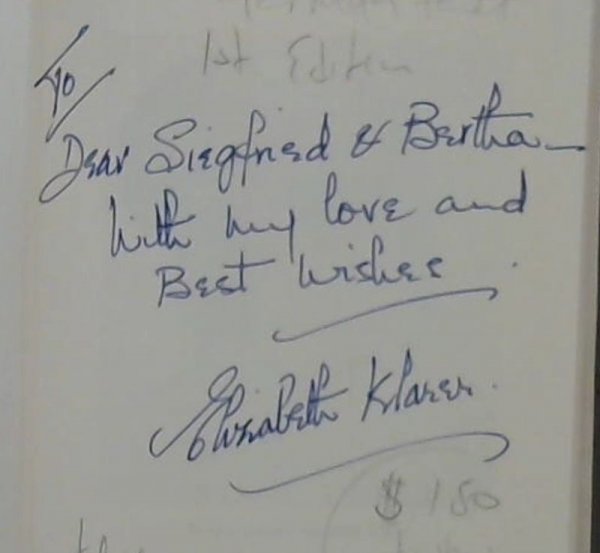 1st Edition
To
Dear Siegfried & Bertha —
With my love and
Best Wishes
Elizabeth Klarer.
$ 150